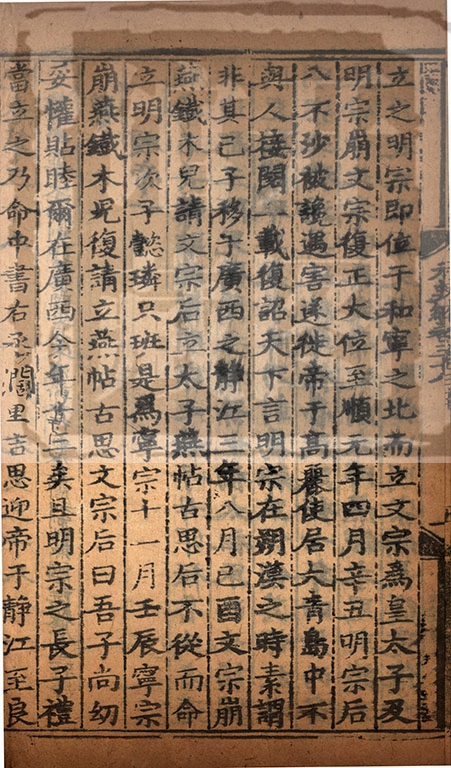 立之明宗即位于和寧之北而立文宗爲皇太子及
明宗崩文宗復正大位至順元年四月辛丑明宗后
八不沙被讒遇害遂徙帝于高麗使居大青島中不
與人接閱一載復詔天下言明宗在朔漠之時素謂
非其己子移于廣西之靜江三年八月己酉文宗崩
燕鐵木兒請文宗后立太子燕帖古思后不從而命
立明宗次子懿璘只班是爲寧宗十一月壬辰寧宗
崩燕鐵木兒復請立燕帖古思文宗后曰吾子尚幼
妥懽貼睦爾在廣西今年十三矣且明宗之長子禮
當立之乃命中書右丞闊里吉思迎帝于靜江至良